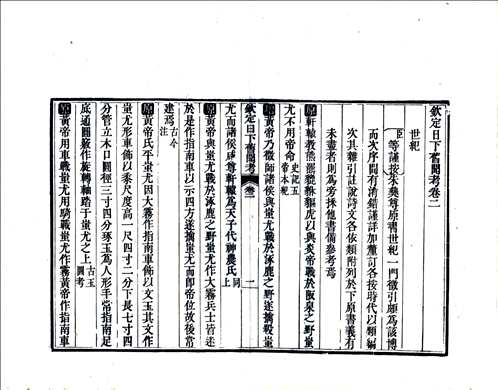 欽定日下舊聞考卷二
世紀
臣等謹按朱彝尊原書世紀一門徵引頗為該博
而次序間有淆錯謹詳加釐訂各按時代以類編
次其雜引註說詩文各依類附列於下原書義有
未盡者則為旁推他書備參考焉
原軒轅教熊羆貔貅貙虎以與炎帝戰於阪泉之野蚩
尤不用帝命史記五帝本紀
原黃帝乃徵師諸侯與蚩尤戰於涿鹿之野遂擒殺蚩
欽定日下舊聞考 卷二 一
尤而諸侯咸尊軒轅為天子代神農氏同上
原黃帝與蚩尤戰於涿鹿之野蚩尤作大霧兵士皆迷
於是作指南車以示四方遂擒蚩尤而即帝位故後常
建焉古今注
原黃帝氏平蚩尤因大霧作指南車飾以文玉其文作
蚩尤形車飾以黍尺度高一尺四寸二分下長七寸四
分管徑立木口圓三寸四分琢玉為人形手常指南足
底通圓竅作旋轉軸踏于蚩尤之上古玉圖考
原黃帝用車戰蚩尤用騎戰蚩尤作霧黃帝作指南車